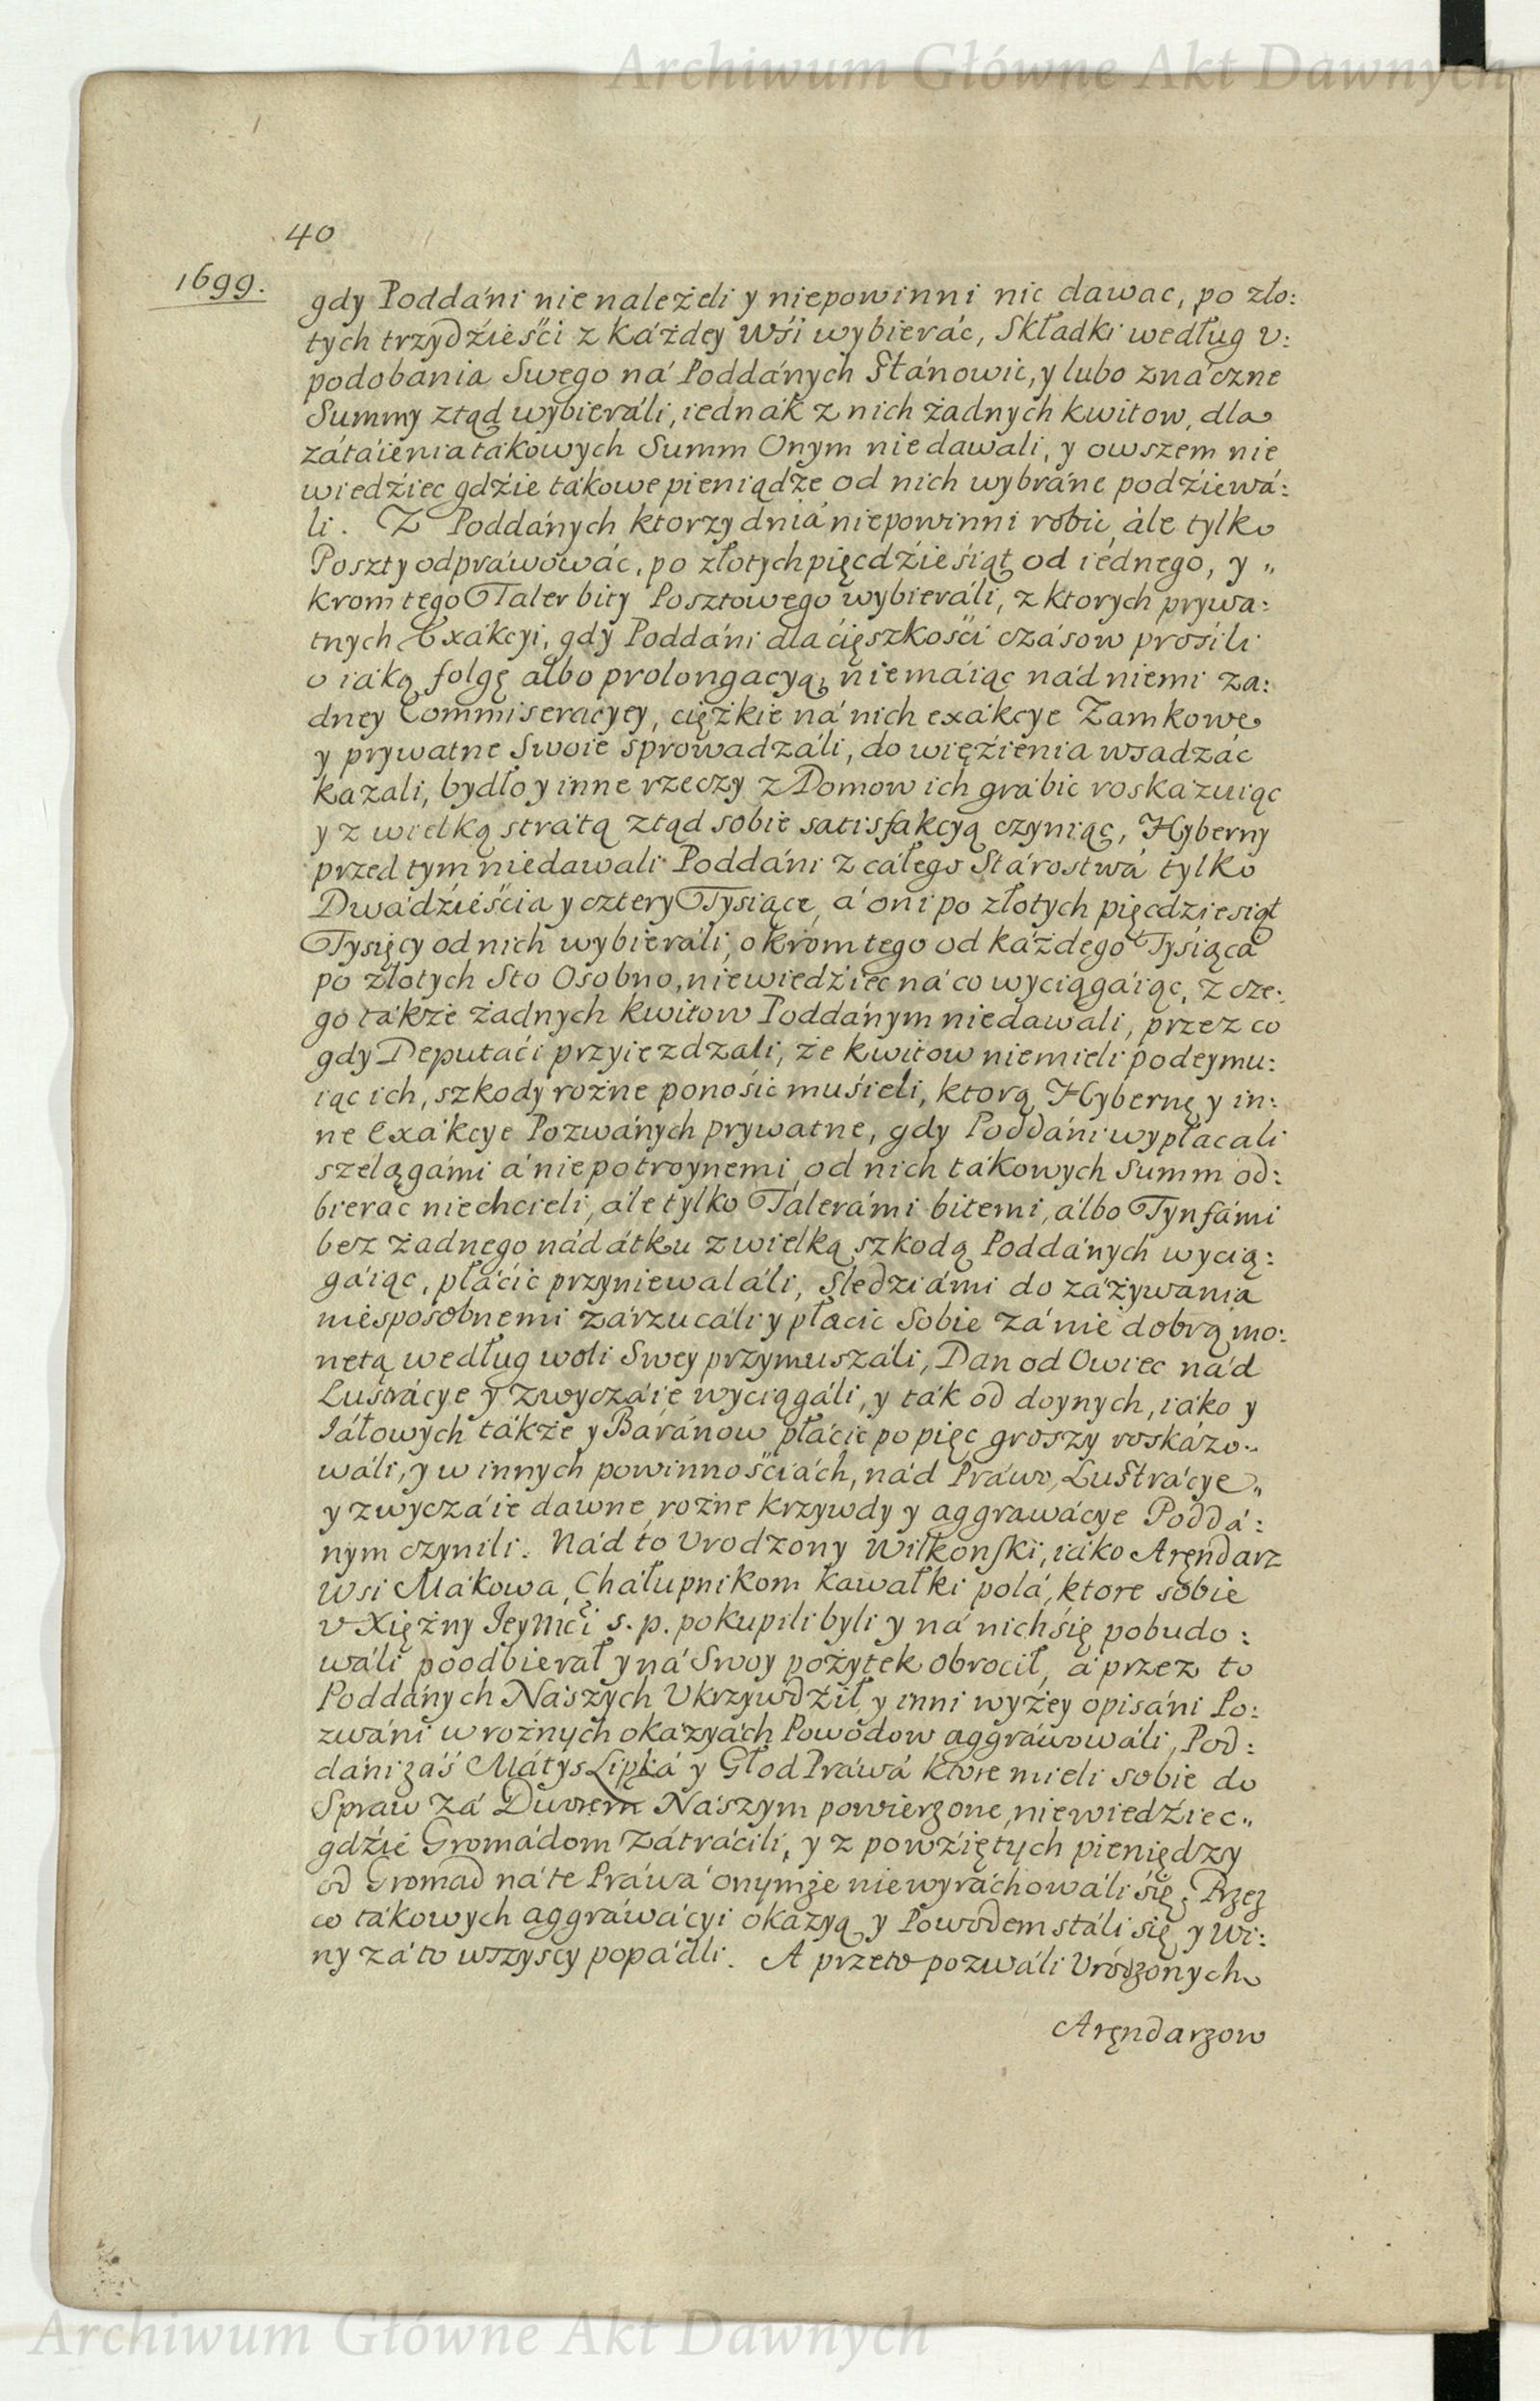 Archiwum Główne Akt Dawnych
40
1699.
gdy Poddáni nie należeli y niepowinni nic dawac, po zło:
tych trzydźieści z káżdey Wśi wybieráć, Składki według v:
podobania Swego ná Poddánych Stánowić, y lubo znáczne
Summy ztąd wybieráli, iednák z nich żadnych kwitow, dla
zátaienia tákowych Summ Onym nie dawali, y owszem nie
wiedźiec gdźie tákowe pieniądze od nich wybráne podźiewá:
li. Z Poddánych ktorzy dniá niepowinni robić, ále tylko
Poszty odpráwowáć, po złotych pięcdźieśiąt od iednego, y „
krom tego Taler bity Posztowego wybieráli, z ktorych prywa:
tnych Exákcyi, gdy Poddáni dla ćięszkośći czásow prośili
o iáką folgę albo prolongacyą, niemáiąc nád niemi za:
dney Commiseracyey, ciężkie ná nich exákcye Zamkowe
y prywatne Swoie sprowadzáli, do więźienia wsadzáć
kazali, bydło y inne rzeczy z Domow ich grabić roskazuiąc
y z wielką strátą ztąd sobie satisfakcyą czyniąc, Hyberny
przed tym niedawali Poddáni z cáłego Stárostwá tylko
Dwádźieśćia y cztery Tysiące, á oni po złotych pięcdziesiąt
Tysięcy od nich wybieráli, okrom tego od káżdego Tyśiąca
po złotych Sto Osobno, niewiedźiec ná co wyciągáiąc, z cze:
go tákże żadnych kwitow Poddánym niedawali, przez co
gdy Deputaći przyiezdzali, że kwitow niemieli podeymu:
iąc ich, szkody rożne ponośić muśieli, ktorą Hybernę y in:
ne Exákcye Pozwánych prywatne, gdy Poddáni wypłacali
szelągámi á nie potroynemi, od nich tákowych Summ od:
bierac niechcieli, ále tylko Tálerámi bitemi, álbo Tynfámi
bez żadnego nádátku z wielką szkodą Poddánych wycią:
gáiąc, płáćić przyniewaláli, Sledziámi do záżywania
niesposobnemi zárzucáli y płacic Sobie zá nie dobrą mo:
netą według woli Swey przymuszáli, Dan od Owiec nád
Lustrácye y zwyczáie wyciągáli, y ták od doynych, iáko y
Jáłowych tákże y Báránow płácic po pięc groszy roskázo„
wáli, y w innych powinnośćiách, nád Práwo, Lustrácye„
y zwyczáie dawne, rożne krzywdy y aggrawácye Poddá:
nym czynili. Nád to Vrodzony Wilkonski, iáko Aręndarz
Wsi Mákowa, Cháłupnikom kawałki polá, ktore sobie
v Xiężny Jeymći s. p. pokupili byli y ná nich się pobudo:
wáli poodbierał y ná Swoy pożytek obrocił, á przez to
Poddánych Nászych Vkrzywdźił, y inni wyżey opisáni Po:
zwáni w rożnych okázyách Powodow aggráwowáli, Pod:
dáni záś Mátys Lipká y Głod Práwá ktore mieli sobie do
Spraw zá Dworem Nászym powierzone, niewiedźiec„
gdźie Gromádom zátráćili, y z powźiętych pieniędzy
od Gromad ná te Práwá onymże niewyráchowáli się. Przez
co tákowych aggráwácyi okázyą y Powodem stáli się, y Wi:
ny zá to wszyscy popádli. A przeto pozwáli Vrodzonych
Aręndarzow
Archiwum Główne Akt Dawnych